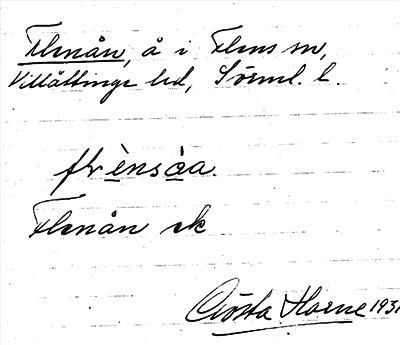 Flenån, å i Flens sn,
Villåttinge hd, Sörml. l.
flènsàa.
Flenån ek
Gösta Harne 1931